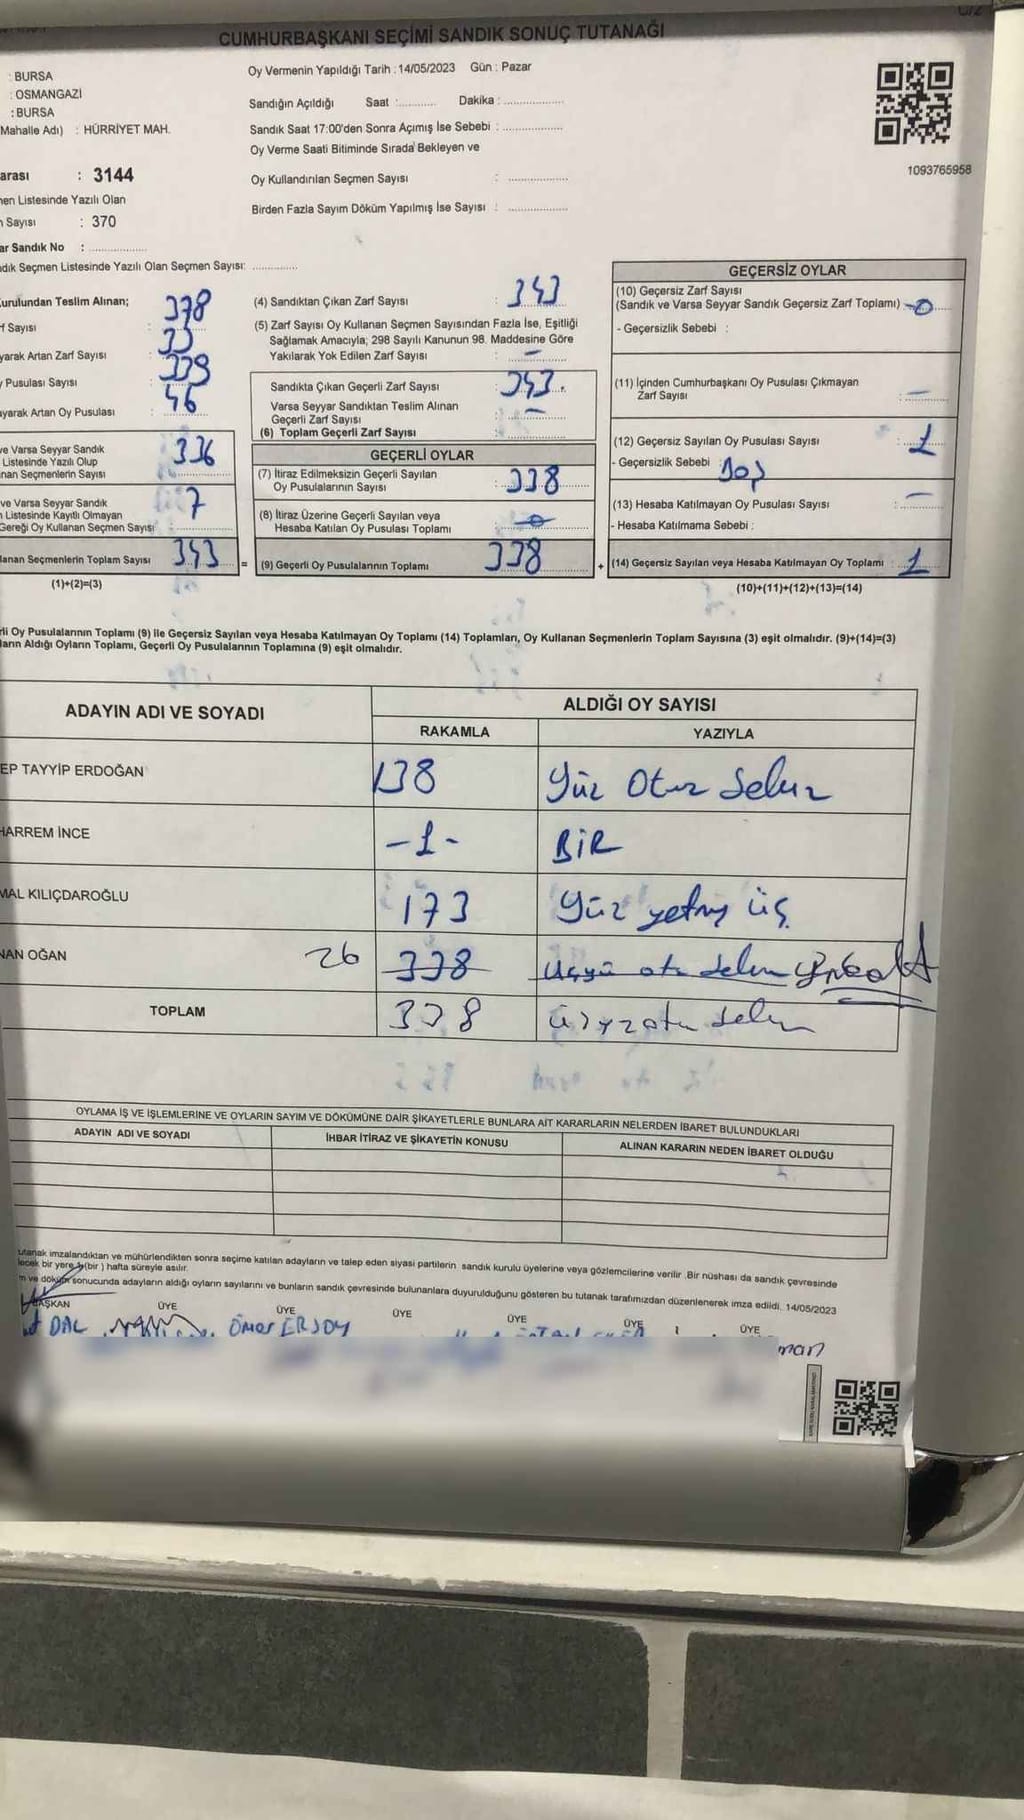 CUMHURBAŞKANI SEÇİMİ SANDIK SONUÇ TUTANAĞI
: BURSA
: OSMANGAZİ
: BURSA
Mahalle Adı) : HÜRRİYET MAH.
arası : 3144
en Listesinde Yazılı Olan
Sayısı : 370
ar Sandık No : ..........
dık Seçmen Listesinde Yazılı Olan Seçmen Sayısı: ..........
Oy Vermenin Yapıldığı Tarih : 14/05/2023 Gün : Pazar
Sandığın Açıldığı Saat :.......... Dakika : ..........
Sandık Saat 17:00'den Sonra Açımış İse Sebebi : ..........
Oy Verme Saati Bitiminde Sırada Bekleyen ve
Oy Kullandırılan Seçmen Sayısı : ..........
Birden Fazla Sayım Döküm Yapılmış İse Sayısı : ..........
1093765958
urulundan Teslim Alınan; 378
f Sayısı : 33
yarak Artan Zarf Sayısı : 339
y Pusulası Sayısı : 46
ayarak Artan Oy Pusulası
ve Varsa Seyyar Sandık
Listesinde Yazılı Olup
nan Seçmenlerin Sayısı 336
ve Varsa Seyyar Sandık
Listesinde Kayıtlı Olmayan
Gereği Oy Kullanan Seçmen Sayısı 7
lanan Seçmenlerin Toplam Sayısı 343 =
(1)+(2)=(3)
(4) Sandıktan Çıkan Zarf Sayısı : 343
(5) Zarf Sayısı Oy Kullanan Seçmen Sayısından Fazla İse, Eşitliği
Sağlamak Amacıyla; 298 Sayılı Kanunun 98. Maddesine Göre
Yakılarak Yok Edilen Zarf Sayısı : -
Sandıkta Çıkan Geçerli Zarf Sayısı 343.
Varsa Seyyar Sandıktan Teslim Alınan
Geçerli Zarf Sayısı -
(6) Toplam Geçerli Zarf Sayısı
GEÇERLİ OYLAR
(7) İtiraz Edilmeksizin Geçerli Sayılan
Oy Pusulalarının Sayısı : 338
(8) İtiraz Üzerine Geçerli Sayılan veya
Hesaba Katılan Oy Pusulası Toplamı -0-
(9) Geçerli Oy Pusulalarının Toplamı 338 +
GEÇERSİZ OYLAR
(10) Geçersiz Zarf Sayısı
(Sandık ve Varsa Seyyar Sandık Geçersiz Zarf Toplamı) -0-
- Geçersizlik Sebebi :
(11) İçinden Cumhurbaşkanı Oy Pusulası Çıkmayan
Zarf Sayısı : -
(12) Geçersiz Sayılan Oy Pusulası Sayısı : 1
- Geçersizlik Sebebi : Boş
(13) Hesaba Katılmayan Oy Pusulası Sayısı : -
- Hesaba Katılmama Sebebi :
(14) Geçersiz Sayılan veya Hesaba Katılmayan Oy Toplamı : 1
(10)+(11)+(12)+(13)=(14)
rli Oy Pusulalarının Toplamı (9) ile Geçersiz Sayılan veya Hesaba Katılmayan Oy Toplamı (14) Toplamları, Oy Kullanan Seçmenlerin Toplam Sayısına (3) eşit olmalıdır. (9)+(14)=(3)
ların Aldığı Oyların Toplamı, Geçerli Oy Pusulalarının Toplamına (9) eşit olmalıdır.
ADAYIN ADI VE SOYADI ALDIĞI OY SAYISI
RAKAMLA YAZIYLA
EP TAYYİP ERDOĞAN 138 Yüz Otuz Sekiz
HARREM İNCE -1- BİR
MAL KILIÇDAROĞLU 173 Yüz yetmiş üç
NAN OĞAN 26 338
TOPLAM 338
OYLAMA İŞ VE İŞLEMLERİNE VE OYLARIN SAYIM VE DÖKÜMÜNE DAİR ŞİKAYETLERLE BUNLARA AİT KARARLARIN NELERDEN İBARET BULUNDUKLARI
ADAYIN ADI VE SOYADI İHBAR İTİRAZ VE ŞİKAYETİN KONUSU ALINAN KARARIN NEDEN İBARET OLDUĞU
utanak imzalandıktan ve mühürlendikten sonra seçime katılan adayların ve talep eden siyasi partilerin sandık kurulu üyelerine veya gözlemcilerine verilir .Bir nüshası da sandık çevresinde
lecek bir yere 1 (bir ) hafta süreyle asılır.
m ve döküm sonucunda adayların aldığı oyların sayılarını ve bunların sandık çevresinde bulunanlara duyurulduğunu gösteren bu tutanak tarafımızdan düzenlenerek imza edildi. 14/05/2023
BAŞKAN ÜYE ÜYE ÜYE ÜYE ÜYE ÜYE
DAL ÖMER ERSOY
man